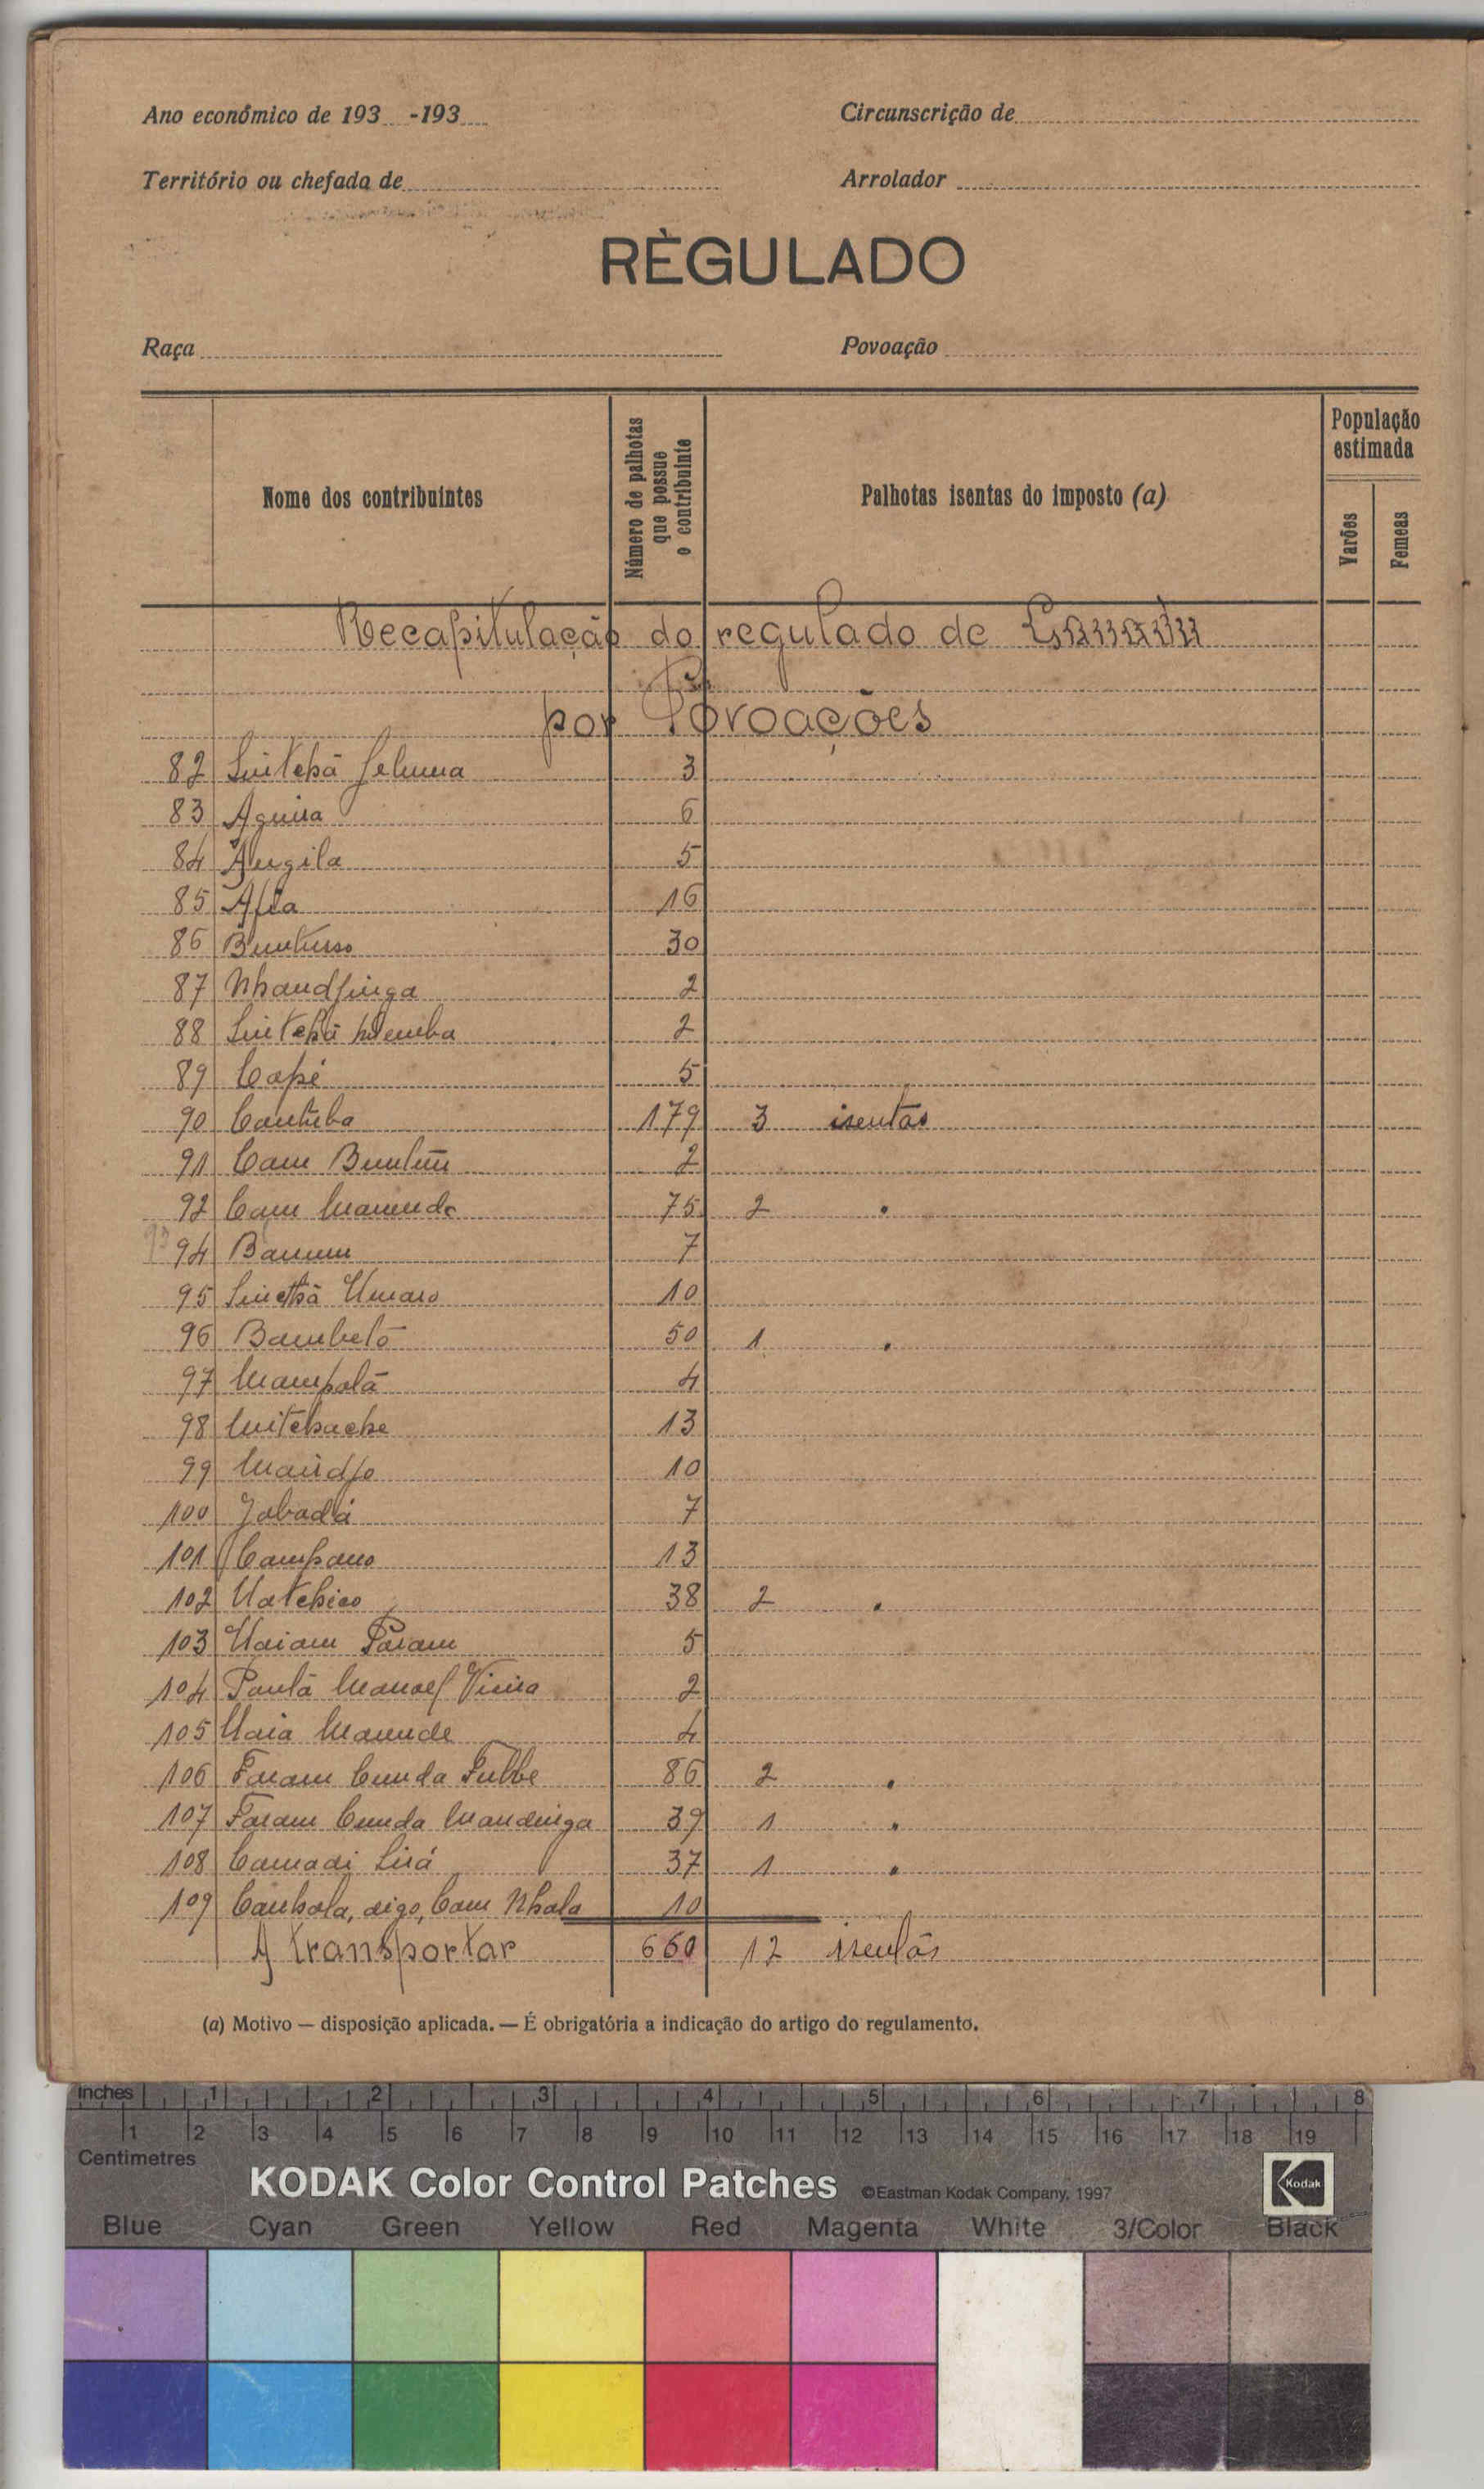 Ano económico de 193 -193
Circunscrição de
Território ou chefada de
Arrolador
RÈGULADO
Raça
Povoação
Nome dos contribuintes
Número de palhotas que possue o contribuinte
Palhotas isentas do imposto (a)
População estimada
Varões
Femeas
Recapitulação do regulado de
por Povoações
82 Sintchã 3
83 6
84 5
85 16
86 30
87 Nhandjinga 2
88 Sintchã 2
89 Capé 5
90 Cantuba 179 3 isentas
91 Cam 2
92 Cam Mamude 75 2 "
93 94 7
95 Sinchã Umaro 10
96 50 1 "
97 Mampatá 4
98 Mitchache 13
99 10
100 Jabadá 7
101 Campano 13
102 Uatchico 38 2 "
103 5
104 Pontã Manoel Vieira 2
105 Mamude 4
106 Faram Cunda Fulbe 86 2 "
107 Faram Cunda Mandinga 39 1 "
108 Camadi 37 1 "
109 Canhala, digo, Cam Nhala 10
A transportar 660 12 isentas
(a) Motivo — disposição aplicada. — É obrigatória a indicação do artigo do regulamento.
inches 1 2 3 4 5 6 7 8
1 2 3 4 5 6 7 8 9 10 11 12 13 14 15 16 17 18 19
Centimetres
KODAK Color Control Patches ©Eastman Kodak Company, 1997 Kodak
Blue Cyan Green Yellow Red Magenta White 3/Color Black